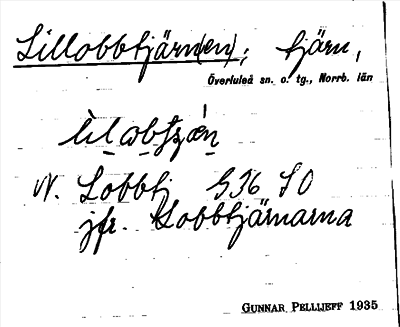 Lillobbtjärn(en); tjärn,
Överluleå sn. o. tg., Norrb. län
N. Lobbtj G36 SO
jfr. Lobbtjärnarna
GUNNAR PELLIJEFF 1935